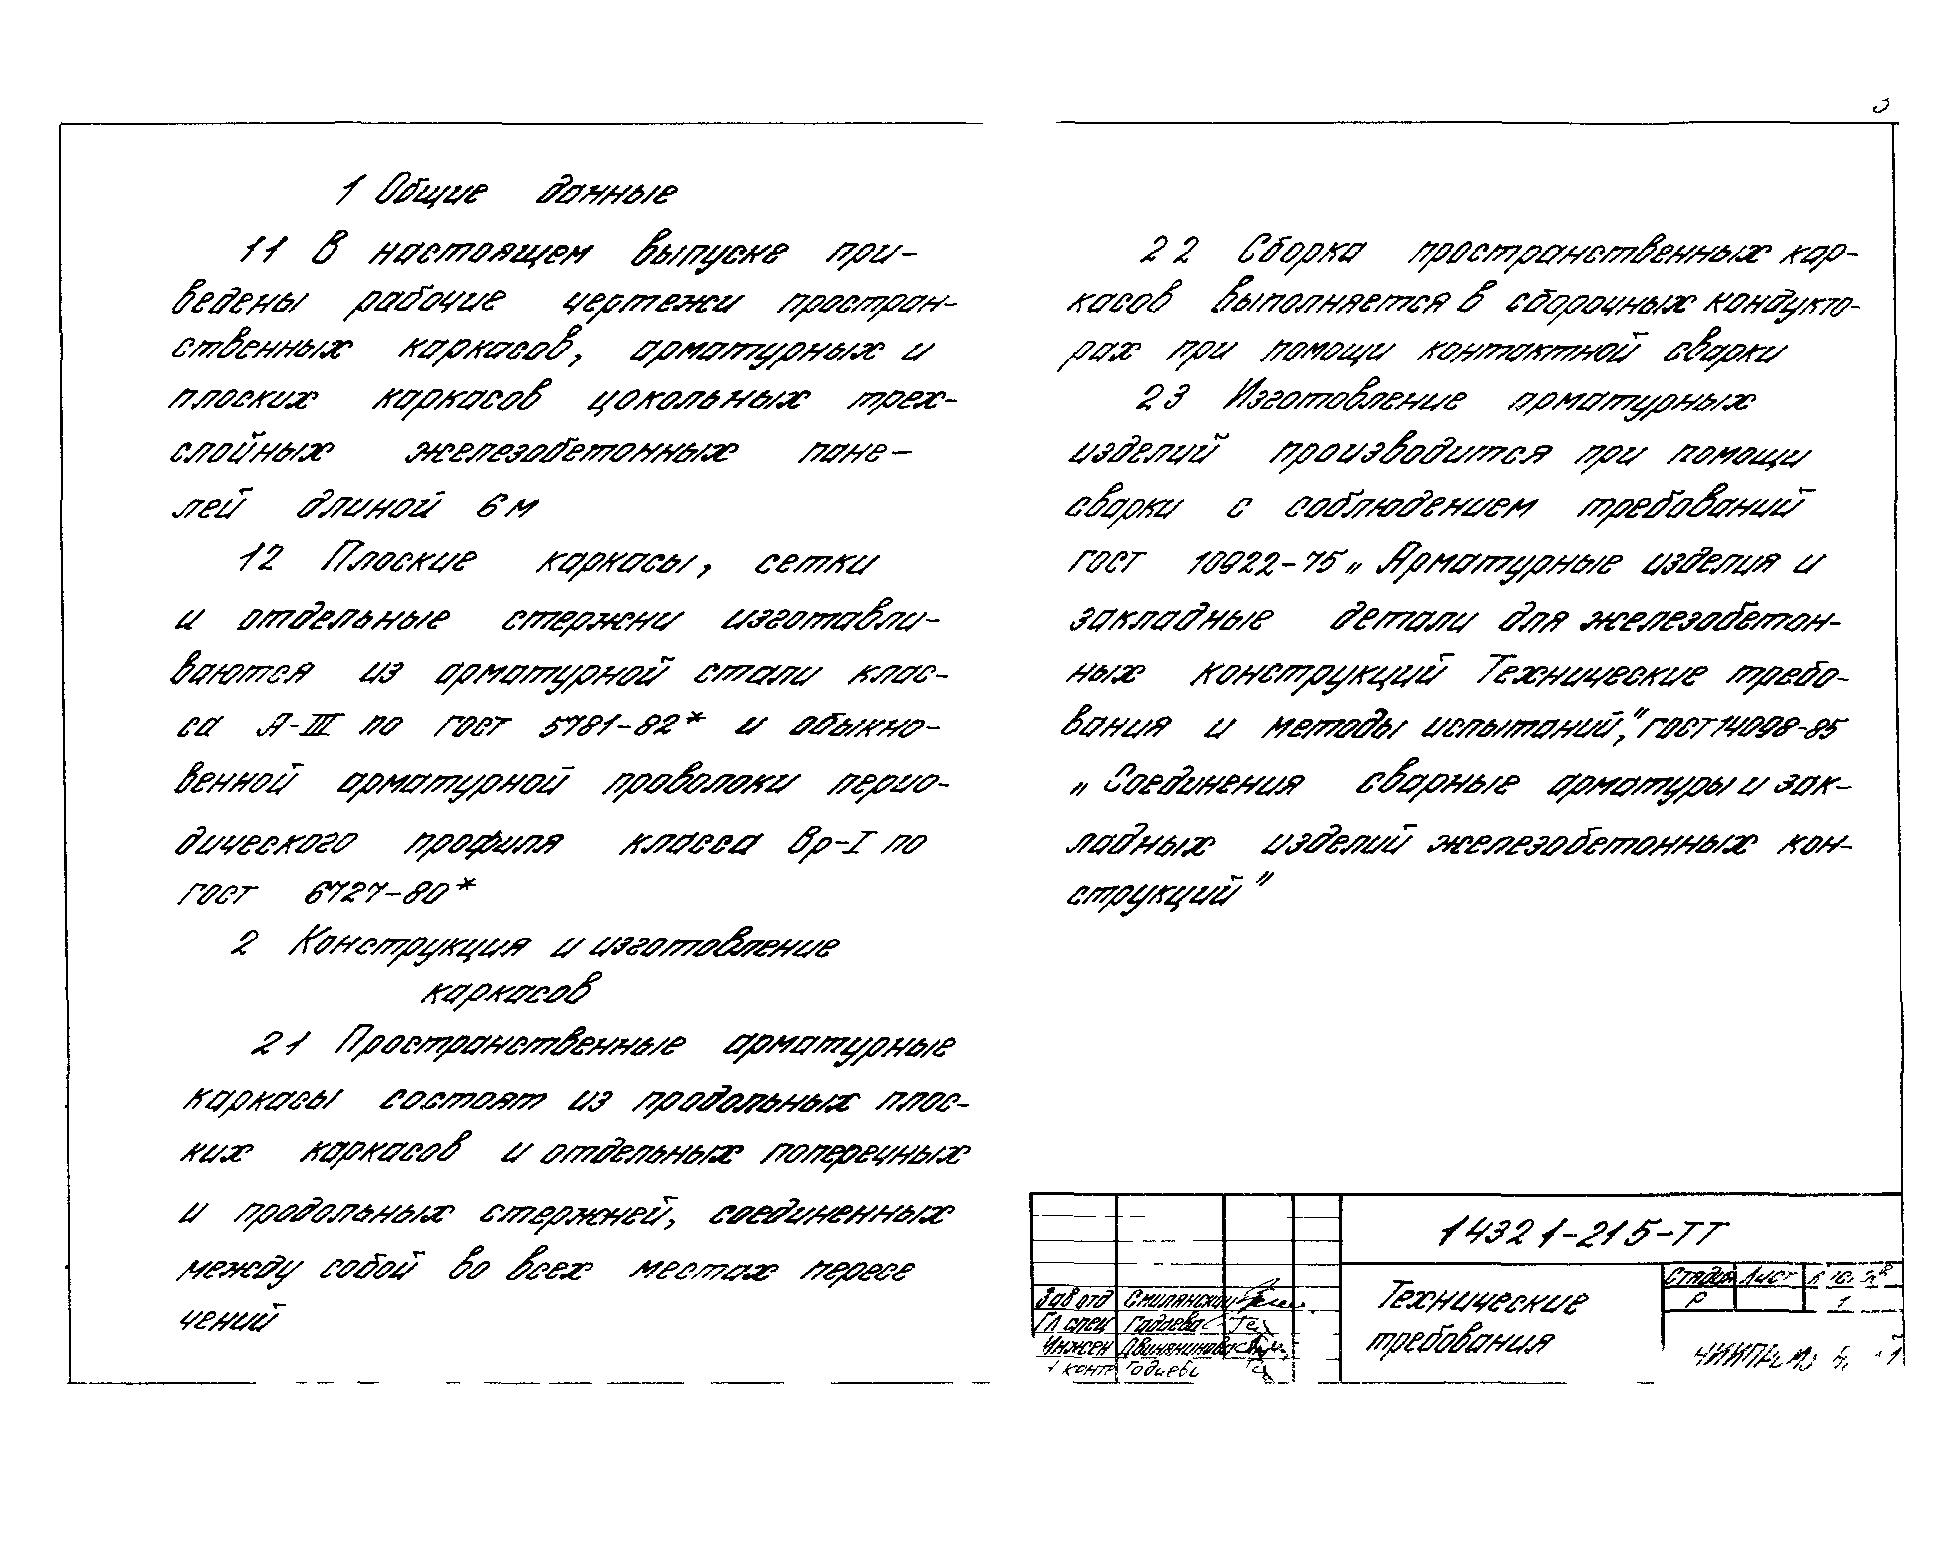 3
1 Общие данные
1 1 В настоящем выпуске при-
ведены рабочие чертежи простран-
ственных каркасов, арматурных и
плоских каркасов цокольных трех-
слойных железобетонных пане-
лей длиной 6 м
1 2 Плоские каркасы, сетки
и отдельные стержни изготавли-
ваются из арматурной стали клас-
са А-III по гост 5781-82* и обыкно-
венной арматурной проволоки перио-
дического профиля класса Вр-I по
гост 6727-80*
2 Конструкция и изготовление
каркасов
2 1 Пространственные арматурные
каркасы состоят из продольных плос-
ких каркасов и отдельных поперечных
и продольных стержней, соединенных
между собой во всех местах пересе
чений
2 2 Сборка пространственных кар-
касов выполняется в сборочных кондукто-
рах при помощи контактной сварки
2 3 Изготовление арматурных
изделий производится при помощи
сварки с соблюдением требований
гост 10922-75 „Арматурные изделия и
закладные детали для железобетон-
ных конструкций Технические требо-
вания и методы испытаний”, гост 14098-85
„Соединения сварные арматуры и зак-
ладных изделий железобетонных кон-
струкций”
1 432 1-21 5-ТТ
Технические
требования
Стадия Лист
Р 1
Зав отд Смилянский
Гл спец Гадаева
Инжен Двинянинова
контр